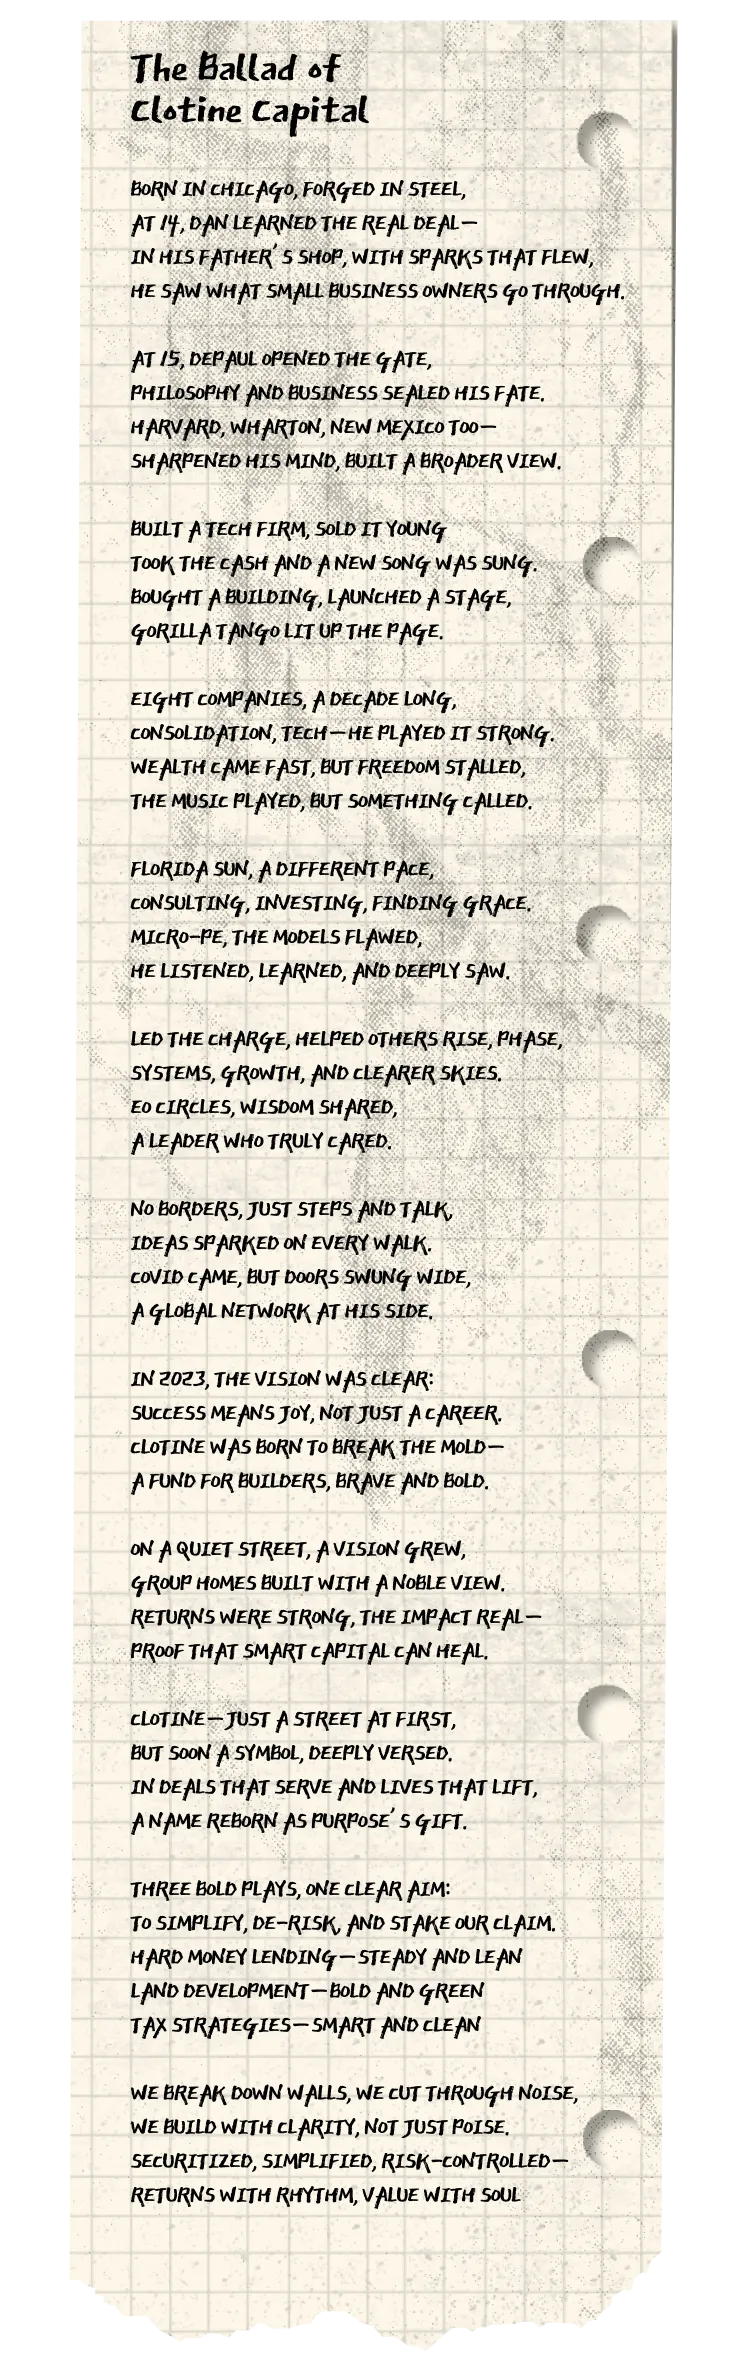 The Ballad of
Clotine Capital
BORN IN CHICAGO, FORGED IN STEEL,
AT 14, DAN LEARNED THE REAL DEAL—
IN HIS FATHER'S SHOP, WITH SPARKS THAT FLEW,
HE SAW WHAT SMALL BUSINESS OWNERS GO THROUGH.
AT 15, DEPAUL OPENED THE GATE,
PHILOSOPHY AND BUSINESS SEALED HIS FATE.
HARVARD, WHARTON, NEW MEXICO TOO—
SHARPENED HIS MIND, BUILT A BROADER VIEW.
BUILT A TECH FIRM, SOLD IT YOUNG
TOOK THE CASH AND A NEW SONG WAS SUNG.
BOUGHT A BUILDING, LAUNCHED A STAGE,
GORILLA TANGO LIT UP THE PAGE.
EIGHT COMPANIES, A DECADE LONG,
CONSOLIDATION, TECH—HE PLAYED IT STRONG.
WEALTH CAME FAST, BUT FREEDOM STALLED,
THE MUSIC PLAYED, BUT SOMETHING CALLED.
FLORIDA SUN, A DIFFERENT PACE,
CONSULTING, INVESTING, FINDING GRACE.
MICRO-PE, THE MODELS FLAWED,
HE LISTENED, LEARNED, AND DEEPLY SAW.
LED THE CHARGE, HELPED OTHERS RISE, PHASE,
SYSTEMS, GROWTH, AND CLEARER SKIES.
EO CIRCLES, WISDOM SHARED,
A LEADER WHO TRULY CARED.
NO BORDERS, JUST STEPS AND TALK,
IDEAS SPARKED ON EVERY WALK.
COVID CAME, BUT DOORS SWUNG WIDE,
A GLOBAL NETWORK AT HIS SIDE.
IN 2023, THE VISION WAS CLEAR:
SUCCESS MEANS JOY, NOT JUST A CAREER.
CLOTINE WAS BORN TO BREAK THE MOLD—
A FUND FOR BUILDERS, BRAVE AND BOLD.
ON A QUIET STREET, A VISION GREW,
GROUP HOMES BUILT WITH A NOBLE VIEW.
RETURNS WERE STRONG, THE IMPACT REAL—
PROOF THAT SMART CAPITAL CAN HEAL.
CLOTINE—JUST A STREET AT FIRST,
BUT SOON A SYMBOL, DEEPLY VERSED.
IN DEALS THAT SERVE AND LIVES THAT LIFT,
A NAME REBORN AS PURPOSE'S GIFT.
THREE BOLD PLAYS, ONE CLEAR AIM:
TO SIMPLIFY, DE-RISK, AND STAKE OUR CLAIM.
HARD MONEY LENDING—STEADY AND LEAN
LAND DEVELOPMENT—BOLD AND GREEN
TAX STRATEGIES—SMART AND CLEAN
WE BREAK DOWN WALLS, WE CUT THROUGH NOISE,
WE BUILD WITH CLARITY, NOT JUST POISE.
SECURITIZED, SIMPLIFIED, RISK-CONTROLLED—
RETURNS WITH RHYTHM, VALUE WITH SOUL